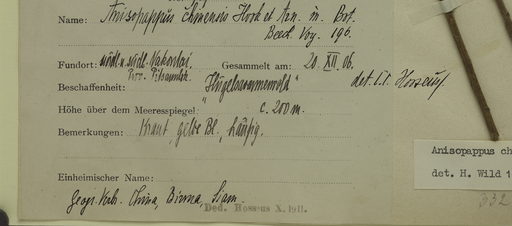 Name: Anisopappus chinensis Hook et Arn. in. Bot.
Beech. Voy. 196.
Fundort: nördl. u. südl. Gesammelt am: 20. XII. 06.
Prov.
Beschaffenheit: "Hügelsavannenwald" det. C.C. Hosseus
Höhe über dem Meeresspiegel: c. 200 m.
Bemerkungen: Kraut, gelbe Bl., häufig.
Einheimischer Name:
Geogr. Verb. China, Birma, Siam.
Ded. Hosseus X. 1911.
Anisopappus ch
det. H. Wild 1
332